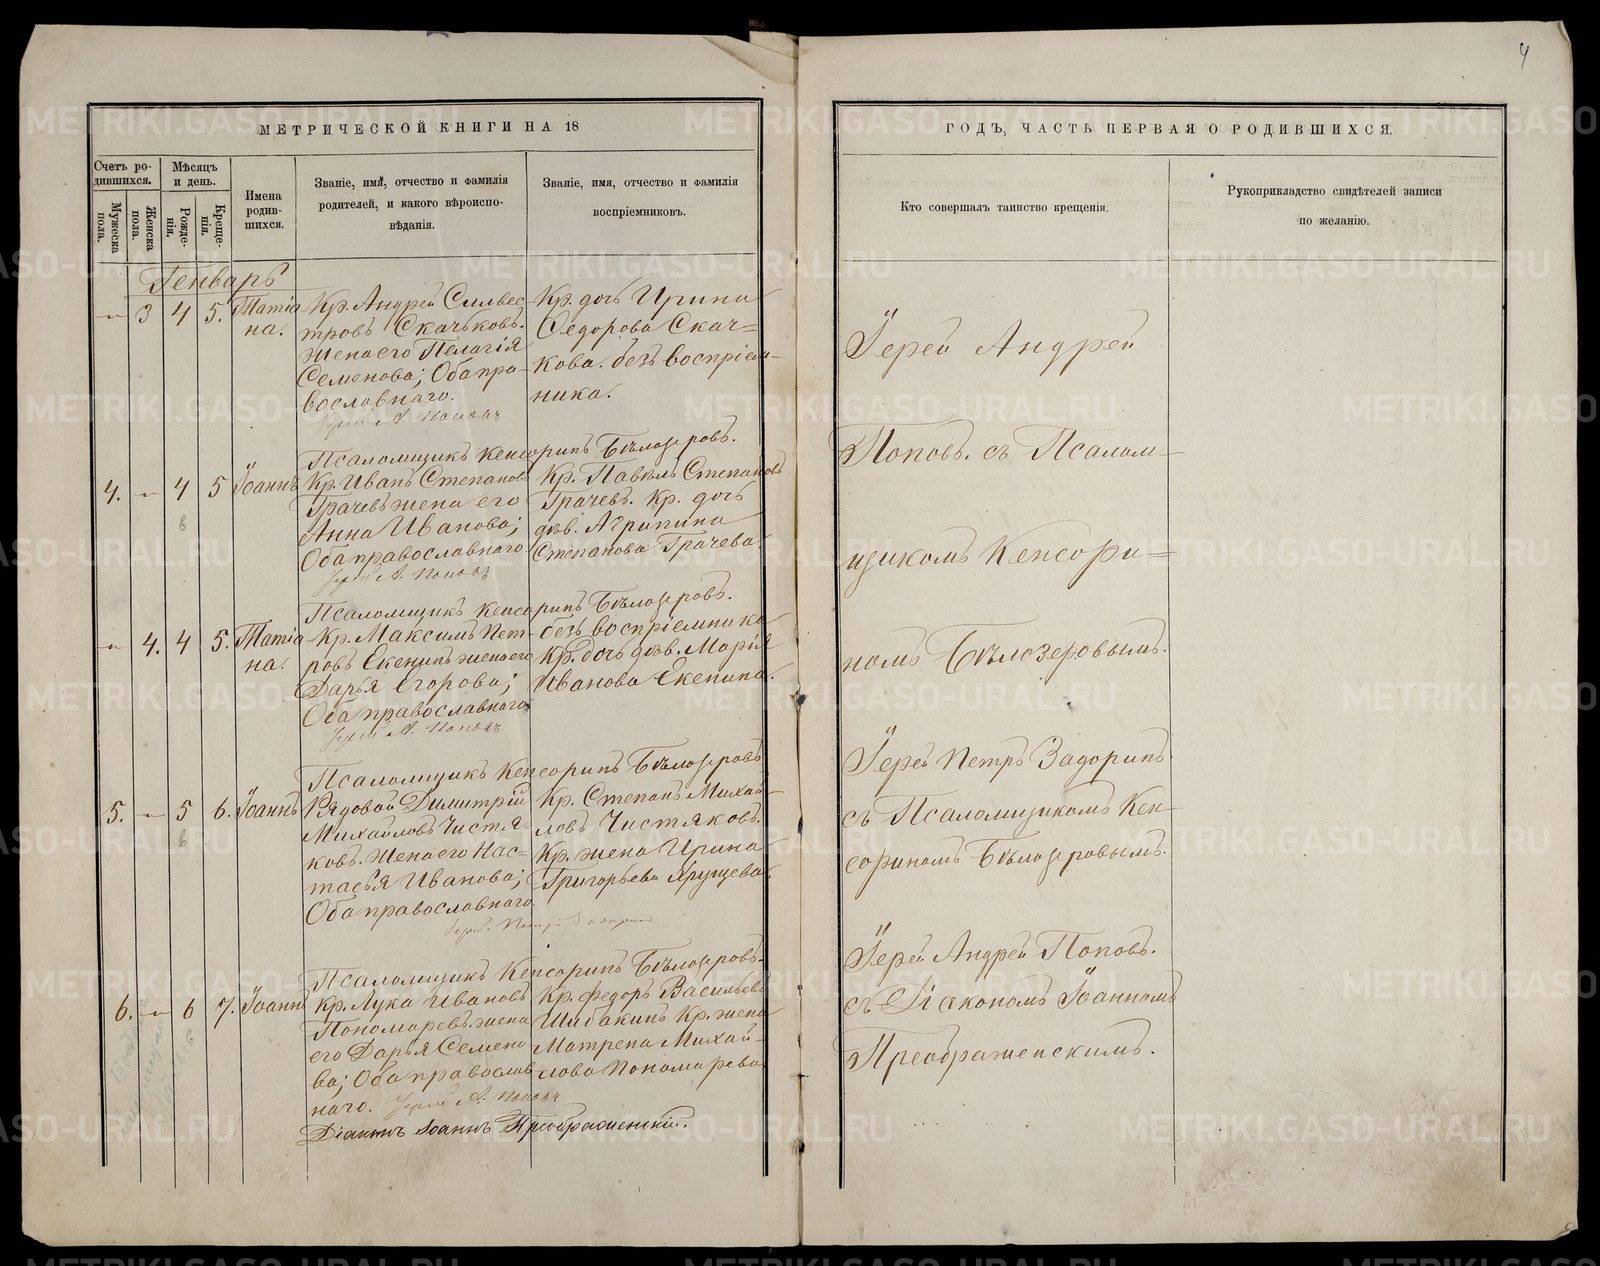 4
МЕТРИЧЕСКОЙ КНИГИ НА 18
Счетъ ро-
дившихся.
Мужеска
пола.
Женска
пола.
Мѣсяцъ
и день.
Рожде-
нія.
Креще-
нія.
Имена
родив-
шихся.
Званіе, имя, отчество и фамилія
родителей, и какого вѣроиспо-
вѣданія.
Званіе, имя, отчество и фамилія
воспріемниковъ.
Генварь
3 4 5. Татіа
на.
Кр. Андрей Сильвес-
тровъ Скачьковъ.
жена его Пелагія
Семенова; Оба пра-
вославнаго.
Іерей А. Поповъ
Кр. дочь Ирина
Федорова Скач=
кова. безъ воспріем-
ника.
Псаломщикъ Кенсоринъ Бѣлозеровъ.
4. 4 5 Іоаннъ
в
Кр. Иванъ Степановъ
Грачевъ жена его
Анна Иванова;
Оба православнаго
Іерей А. Поповъ
Кр. Павелъ Степановъ
Грачевъ. Кр. дочь
дѣв. Агрипина
Степанова Грачева.
Псаломщикъ Кенсоринъ Бѣлозеровъ.
4. 4 5. Татіа
на.
Кр. Максимъ Пет-
ровъ Екенинъ жена его
Дарья Егорова;
Оба православнаго
Іерей А. Поповъ
безъ воспріемника
Кр. дочь дѣв. Марія
Иванова Екенина.
Псаломщикъ Кенсоринъ Бѣлозеровъ
5. 5 6. Іоаннъ
в
Рядовой Димитрій
Михайловъ Чистя-
ковъ. жена его Нас-
тасья Иванова;
Оба православнаго
Іерей Петръ Задоринъ
Кр. Степанъ Михай-
ловъ Чистяковъ.
Кр. жена Ирина
Григорьева Хрущева
Псаломщикъ Кенсоринъ Бѣлозеровъ.
6. 6 7. Іоаннъ
в
Кр. Лука Ивановъ
Пономаревъ. жена
его Дарья Семено
ва; Оба православ
наго. Іерей А. Поповъ
Кр. Федоръ Васильевъ
Шибакинъ Кр. жена
Матрена Михай-
лова Пономарева
Діаконъ Іоаннъ Преображенскій.
ГОДЪ, ЧАСТЬ ПЕРВАЯ О РОДИВШИХСЯ.
Кто совершалъ таинство крещенія.
Рукоприкладство свидѣтелей записи
по желанію.
Іерей Андрей
Поповъ. съ Псалом-
щикомъ Кенсори=
номъ Бѣлозеровымъ.
Іерей Петръ Задоринъ
съ Псаломщикомъ Кен-
сориномъ Бѣлозеровымъ.
Іерей Андрей Поповъ.
съ Діакономъ Іоанномъ
Преображенскимъ.
METRIKI.GASO-URAL.RU